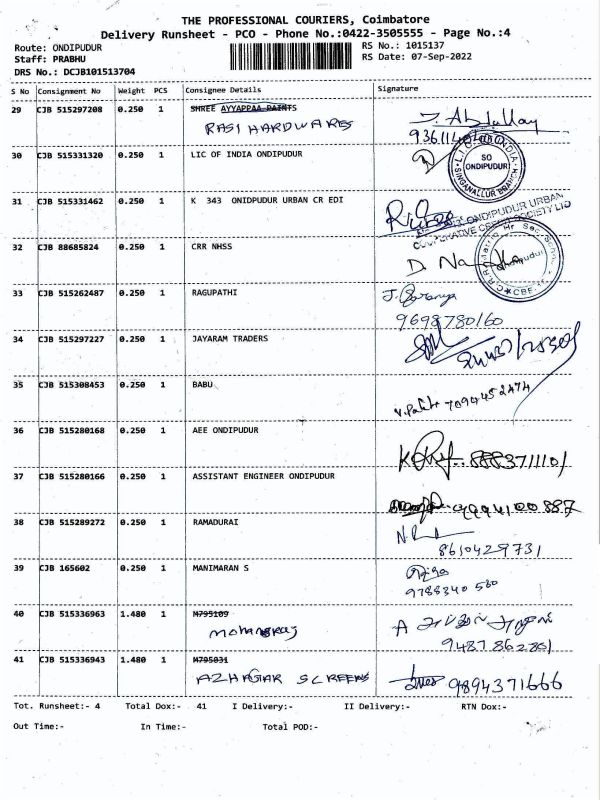 THE PROFESSIONAL COURIERS, Coimbatore
Delivery Runsheet - PCO - Phone No.:0422-3505555 - Page No.:4
Route: ONDIPUDUR
RS No.: 1015137
Staff: PRABHU
RS Date: 07-Sep-2022
DRS No.: DCJB101513704
S No Consignment No Weight PCS Consignee Details Signature
29 CJB 515297208 0.250 1 SHREE AYYAPPAA PAINTS
RASI HARDWARES
30 CJB 515331320 0.250 1 LIC OF INDIA ONDIPUDUR
SO
ONDIPUDUR
SINGANALLUR BRANCH
31 CJB 515331462 0.250 1 K 343 ONIDPUDUR URBAN CR EDI
ONDIPUDUR URBAN
COOPERATIVE CREDIT SOCIETY LTD
32 CJB 88685824 0.250 1 CRR NHSS
33 CJB 515262487 0.250 1 RAGUPATHI
J. Saranya
9698780160
34 CJB 515297227 0.250 1 JAYARAM TRADERS
35 CJB 515308453 0.250 1 BABU
7094452474
36 CJB 515280168 0.250 1 AEE ONDIPUDUR
37 CJB 515280166 0.250 1 ASSISTANT ENGINEER ONDIPUDUR
38 CJB 515289272 0.250 1 RAMADURAI
8610429731
39 CJB 165602 0.250 1 MANIMARAN S
9788340 560
40 CJB 515336963 1.480 1 M795109
Mohanraj
9487862861
41 CJB 515336943 1.480 1 M795031
AZHAGAR SCREENS
9894371666
Tot. Runsheet:- 4 Total Dox:- 41 I Delivery:- II Delivery:- RTN Dox:-
Out Time:- In Time:- Total POD:-